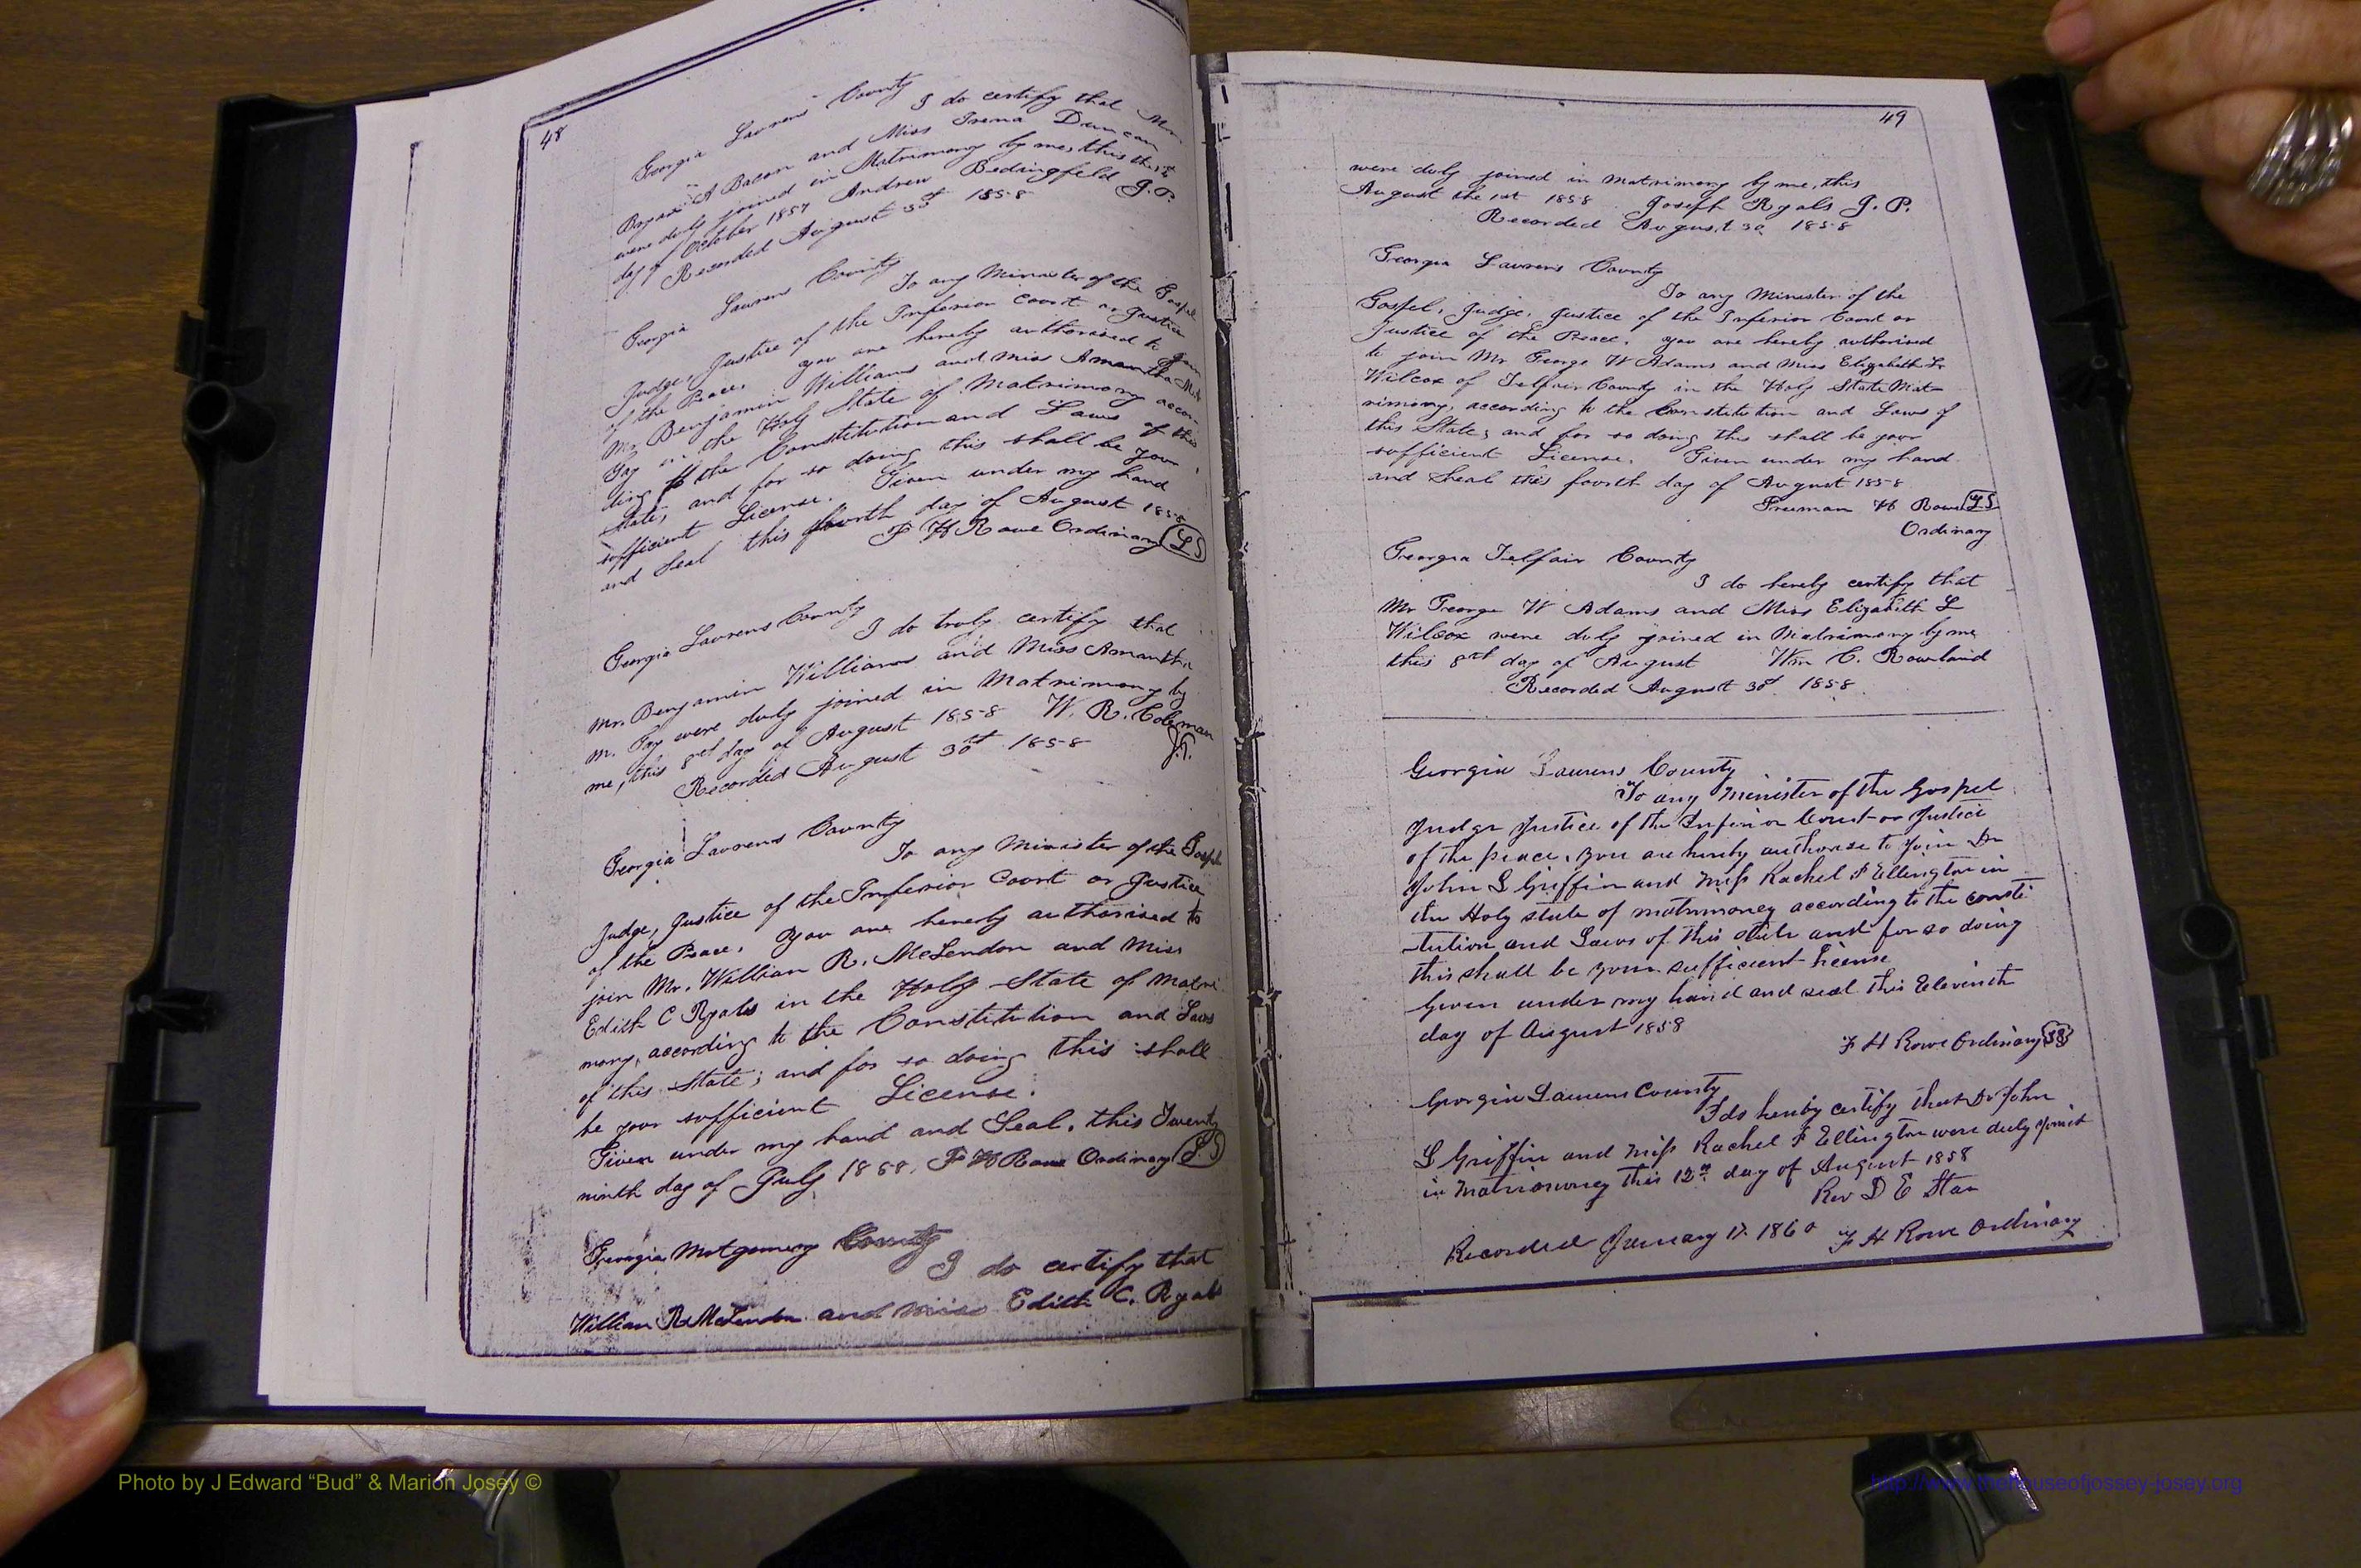 48
Georgia Laurens County
I do certify that Mr.
Bryan A Bacon and Miss Irena Duncan
were duly joined in Matrimony by me, this the
day of October 1857 Andrew Bedingfield J.P.
Recorded August 30th 1858
Georgia Laurens County
To any Minister of the Gospel
Judge, Justice of the Inferior Court or Justice
of the Peace. you are hereby authorised to join
Mr Benjamin Williams and Miss Amantha M.
Fay in the Holy State of Matrimony accor-
ding to the Constitution and Laws of this
State, and for so doing this shall be your
sufficient License. Given under my hand
and Seal this fourth day of August 1858
F H Rowe Ordinary L S
Georgia Laurens County
I do truly certify that
Mr. Benjamin Williams and Miss Amantha
M. Fay were duly joined in Matrimony by
me, this 8th day of August 1858 W. R. Coleman
J.P.
Recorded August 30th 1858
Georgia Laurens County
To any Minister of the Gospel
Judge, Justice of the Inferior Court or Justice
of the Peace. You are hereby authorised to
join Mr. William R. McLendon and Miss
Edith C Ryals in the Holy State of Matri-
mony, according to the Constitution and Laws
of this State; and for so doing this shall
be your sufficient License.
Given under my hand and Seal, this Twenty
ninth day of July 1858. F H Rowe Ordinary L S
Georgia Motgomery County
I do certify that
William R McLendon and Miss Edith C. Ryals
49
were duly joined in matrimony by me, this
August the 1st 1858 Joseph Ryals J. P.
Recorded August 30 1858
Georgia Laurens County
To any Minister of the
Gospel, Judge, Justice of the Inferior Court or
Justice of the Peace. you are hereby authorised
to join Mr George W Adams and Miss Elizabeth L
Wilcox of Telfair County in the Holy State Mat-
rimony, according to the Constitution and Laws of
this State; and for so doing this shall be your
sufficient License. Given under my hand
and Seal this fourth day of August 1858
Freeman H Rowe L S
Ordinary
Georgia Telfair County
I do hereby certify that
Mr George W Adams and Miss Elizabeth L
Wilcox were duly joined in Matrimony by me
this 8th day of August Wm C. Rowland
Recorded August 30th 1858
Georgia Laurens County
To any Minister of the Gospel
Judge Justice of the Inferior Court or Justice
of the peace, you are hereby authorise to join Dr
John L Griffin and Miss Rachel F Ellington in
the Holy state of matrimoney according to the consti
tution and Laws of this state and for so doing
this shall be your sufficient license
Given under my hand and seal this Eleventh
day of August 1858
F H Rowe Ordinary LS
Georgia Laurens County
I do hereby certify that Dr John
L Griffin and Miss Rachel F Ellington were duly joind
in Matrimoney this 12th day of August 1858
Rev D E Starr
Recorded January 17 1860 F H Rowe Ordinary
Photo by J Edward “Bud” & Marion Josey ©
http://www.thehouseofjossey-josey.org